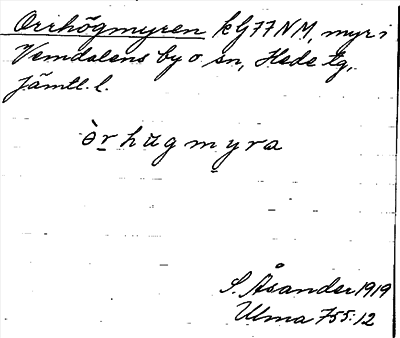 Orrhögmyren kG77NM, myr i
Vemdalens by o sn, Hede tg,
Jämtl. l.
òrhøgmyra
S. Åsander 1919
Ulma 755:12